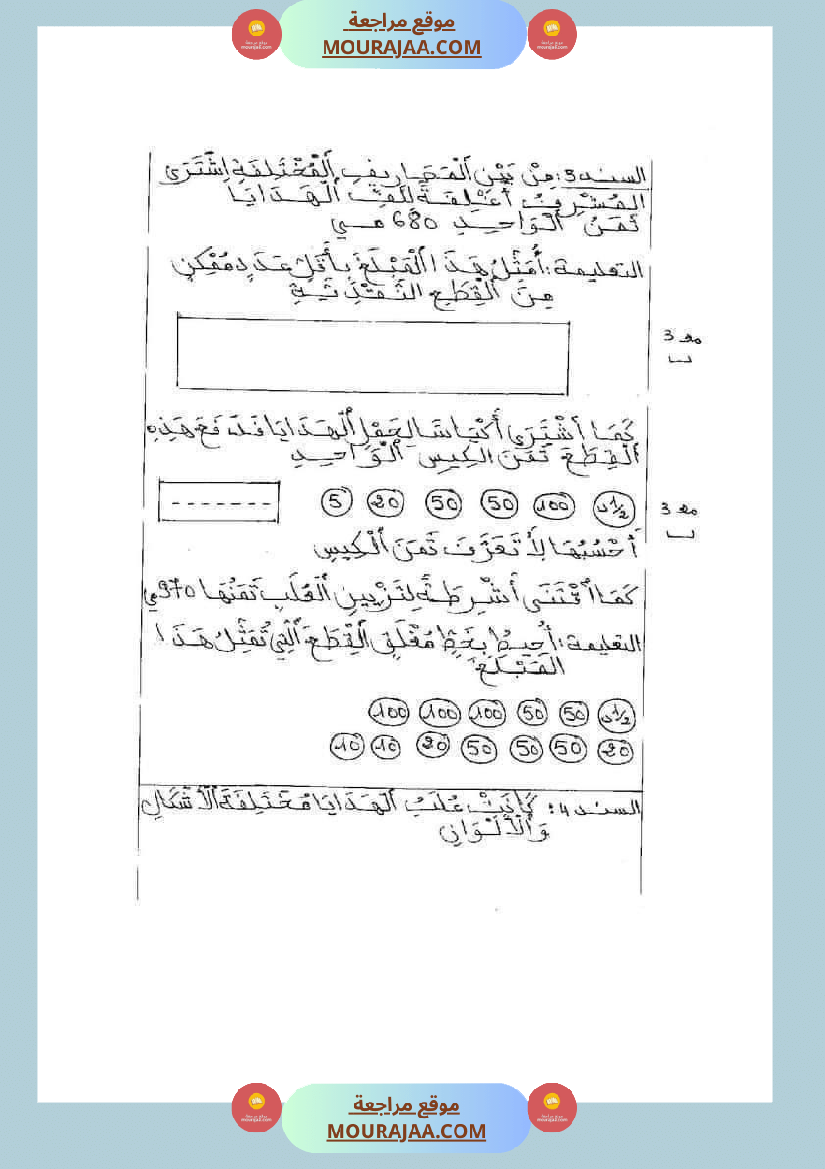 موقع مراجعة
MOURAJAA.COM
السند 3: مِنْ بَيْنِ اَلْمَصَارِيفِ اَلْمُخْتَلِفَةِ اِشْتَرَى
المُشْرِفُ أَغْلِفَةً لِلَفِّ اَلْهَدَايَا
ثَمَنُ اَلْوَاحِدِ 680 مي
التعليمة: أُمَثِّلُ هَذَا اَلْمَبْلَغَ بِأَقَلِّ عَدَدٍ مُمْكِنٍ
مِنَ اَلْقِطَعِ النَّقْدِيَّةِ
مع 3
كَمَا اِشْتَرَى أَكْيَاسًا لِحَمْلِ اَلْهَدَايَا فَدَفَعَ هَذِهِ
اَلْقِطَعَ ثَمَنَ الكِيسِ اَلْوَاحِدِ
1/2د 100 50 50 20 5 -------
مع 3
أَحْسُبُهَا لِأَتَعَرَّفَ ثَمَنَ اَلْكِيسِ
كَمَا اِقْتَنَى أَشْرِطَةً لِتَزْيِينِ اَلْعُلَبِ ثَمَنُهَا 970 مي
التعليمة: أُحِيطُ بِخَطٍّ مُغْلَقٍ اَلْقِطَعَ اَلَّتِي تُمَثِّلُ هَذَا
المَبْلَغَ
1/2د 50 50 100 100 100
20 50 50 50 20 10 10
السند 4: كَانَتْ عُلَبُ اَلْهَدَايَا مُخْتَلِفَةَ اَلْأَشْكَالِ
وَاَلْأَلْوَانِ
موقع مراجعة
MOURAJAA.COM